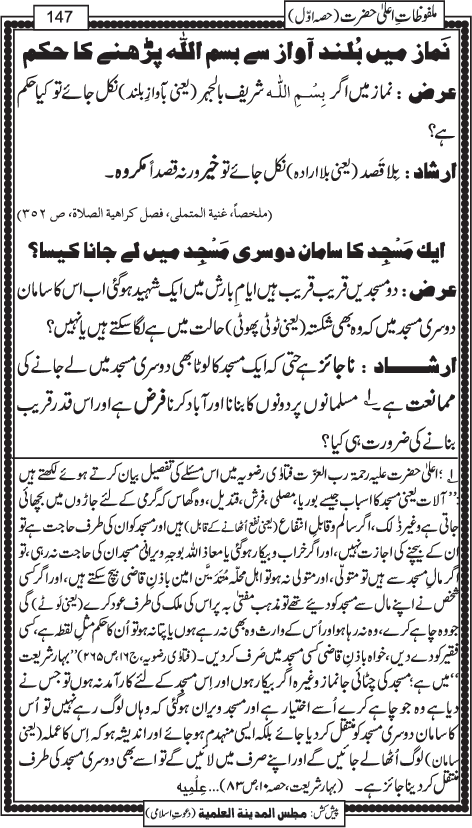 ملفوظاتِ اعلیٰ حضرت (حصہ اوّل)
147
نَماز میں بُلند آواز سے بسم اللّٰہ پڑھنے کا حکم
عرض : نماز میں اگر بِسْمِ اللّٰہ شریف بالجہر (یعنی بآوازِ بلند) نکل جائے تو کیا حکم
ہے؟
ارشاد : بِلا قَصد (یعنی بلا ارادہ) نکل جائے تو خیر ورنہ قصداً مکروہ۔
(ملخصاً، غنیة المتملی، فصل کراهیة الصلاة، ص ۳۵۲)
ایك مَسْجِد کا سامان دوسری مَسْجِد میں لے جانا کیسا؟
عرض : دو مسجدیں قریب قریب ہیں ایامِ بارش میں ایک شہید ہوگئی اب اس کا سامان
دوسری مسجد میں کہ وہ بھی شکستہ (یعنی ٹوٹی پھوٹی) حالت میں ہے لگا سکتے ہیں یا نہیں؟
ارشـــاد : ناجائز ہے حتی کہ ایک مسجد کا لوٹا بھی دوسری مسجد میں لے جانے کی
ممانعت ہے۔ ۱؎ مسلمانوں پر دونوں کا بنانا اور آباد کرنا فرض ہے اور اس قدر قریب
بنانے کی ضرورت ہی کیا؟
۱؎ : اعلیٰ حضرت علیہ رحمۃ رب العزّت فتاوٰی رضویہ میں اس مسئلے کی تفصیل بیان کرتے ہوئے لکھتے ہیں
”آلات یعنی مسجد کا اسباب جیسے بوریا، مصلی، فرش، قندیل، وہ گھاس کہ گرمی کے لئے جاڑوں میں بچھائی
جاتی ہے وغیرہ ذٰلک، اگر سالم و قابلِ انتفاع (یعنی نفع اُٹھانے کے قابل) ہیں اور مسجد کو ان کی طرف حاجت ہے تو
ان کے بیچنے کی اجازت نہیں، اور اگر خراب و بیکار ہوگئی یا معاذ اللہ بوجہِ ویرانی مسجد ان کی حاجت نہ رہی، تو
اگر مالِ مسجد سے ہیں تو متولّی، اور متولی نہ ہو تو اہلِ محلّہ متدیّن امین باذنِ قاضی بیچ سکتے ہیں، اور اگر کسی
شخص نے اپنے مال سے مسجد کو دیئے تھے تو مذہبِ مفتٰی بہ پر اس کی ملک کی طرف عود کرے (یعنی لوٹے) گی
جو وہ چاہے کرے، وہ نہ رہا ہو اور اُس کے وارث وہ بھی نہ رہے ہوں یا پتا نہ ہو تو اُن کا حکم مثلِ لقطہ ہے، کسی
فقیر کو دے دیں، خواہ باذنِ قاضی کسی مسجد میں صرف کر دیں۔ (فتاوٰی رضویہ، ج۱۶، ص ۲۶۵)“ بہارِ شریعت
”میں ہے : مسجد کی چٹائی جانماز وغیرہ اگر بیکار ہوں اور اِس مسجد کے لئے کارآمد نہ ہوں تو جس نے
دیا ہے وہ جو چاہے کرے اُسے اختیار ہے اور مسجد ویران ہوگئی کہ وہاں لوگ رہے نہیں تو اُس
کا سامان دوسری مسجد کو منتقل کر دیا جائے بلکہ ایسی منہدم ہو جائے اور اندیشہ ہو کہ اِس کا عملہ (یعنی
سامان) لوگ اُٹھا لے جائیں گے اور اپنے صرف میں لائیں گے تو اسے بھی دوسری مسجد کی طرف
منتقل کر دینا جائز ہے۔ (بہارِ شریعت، حصہ۱۰، ص ۸۳)... عِلمِیہ
پیش کش: مجلس المدینة العلمیة (دعوتِ اسلامی)